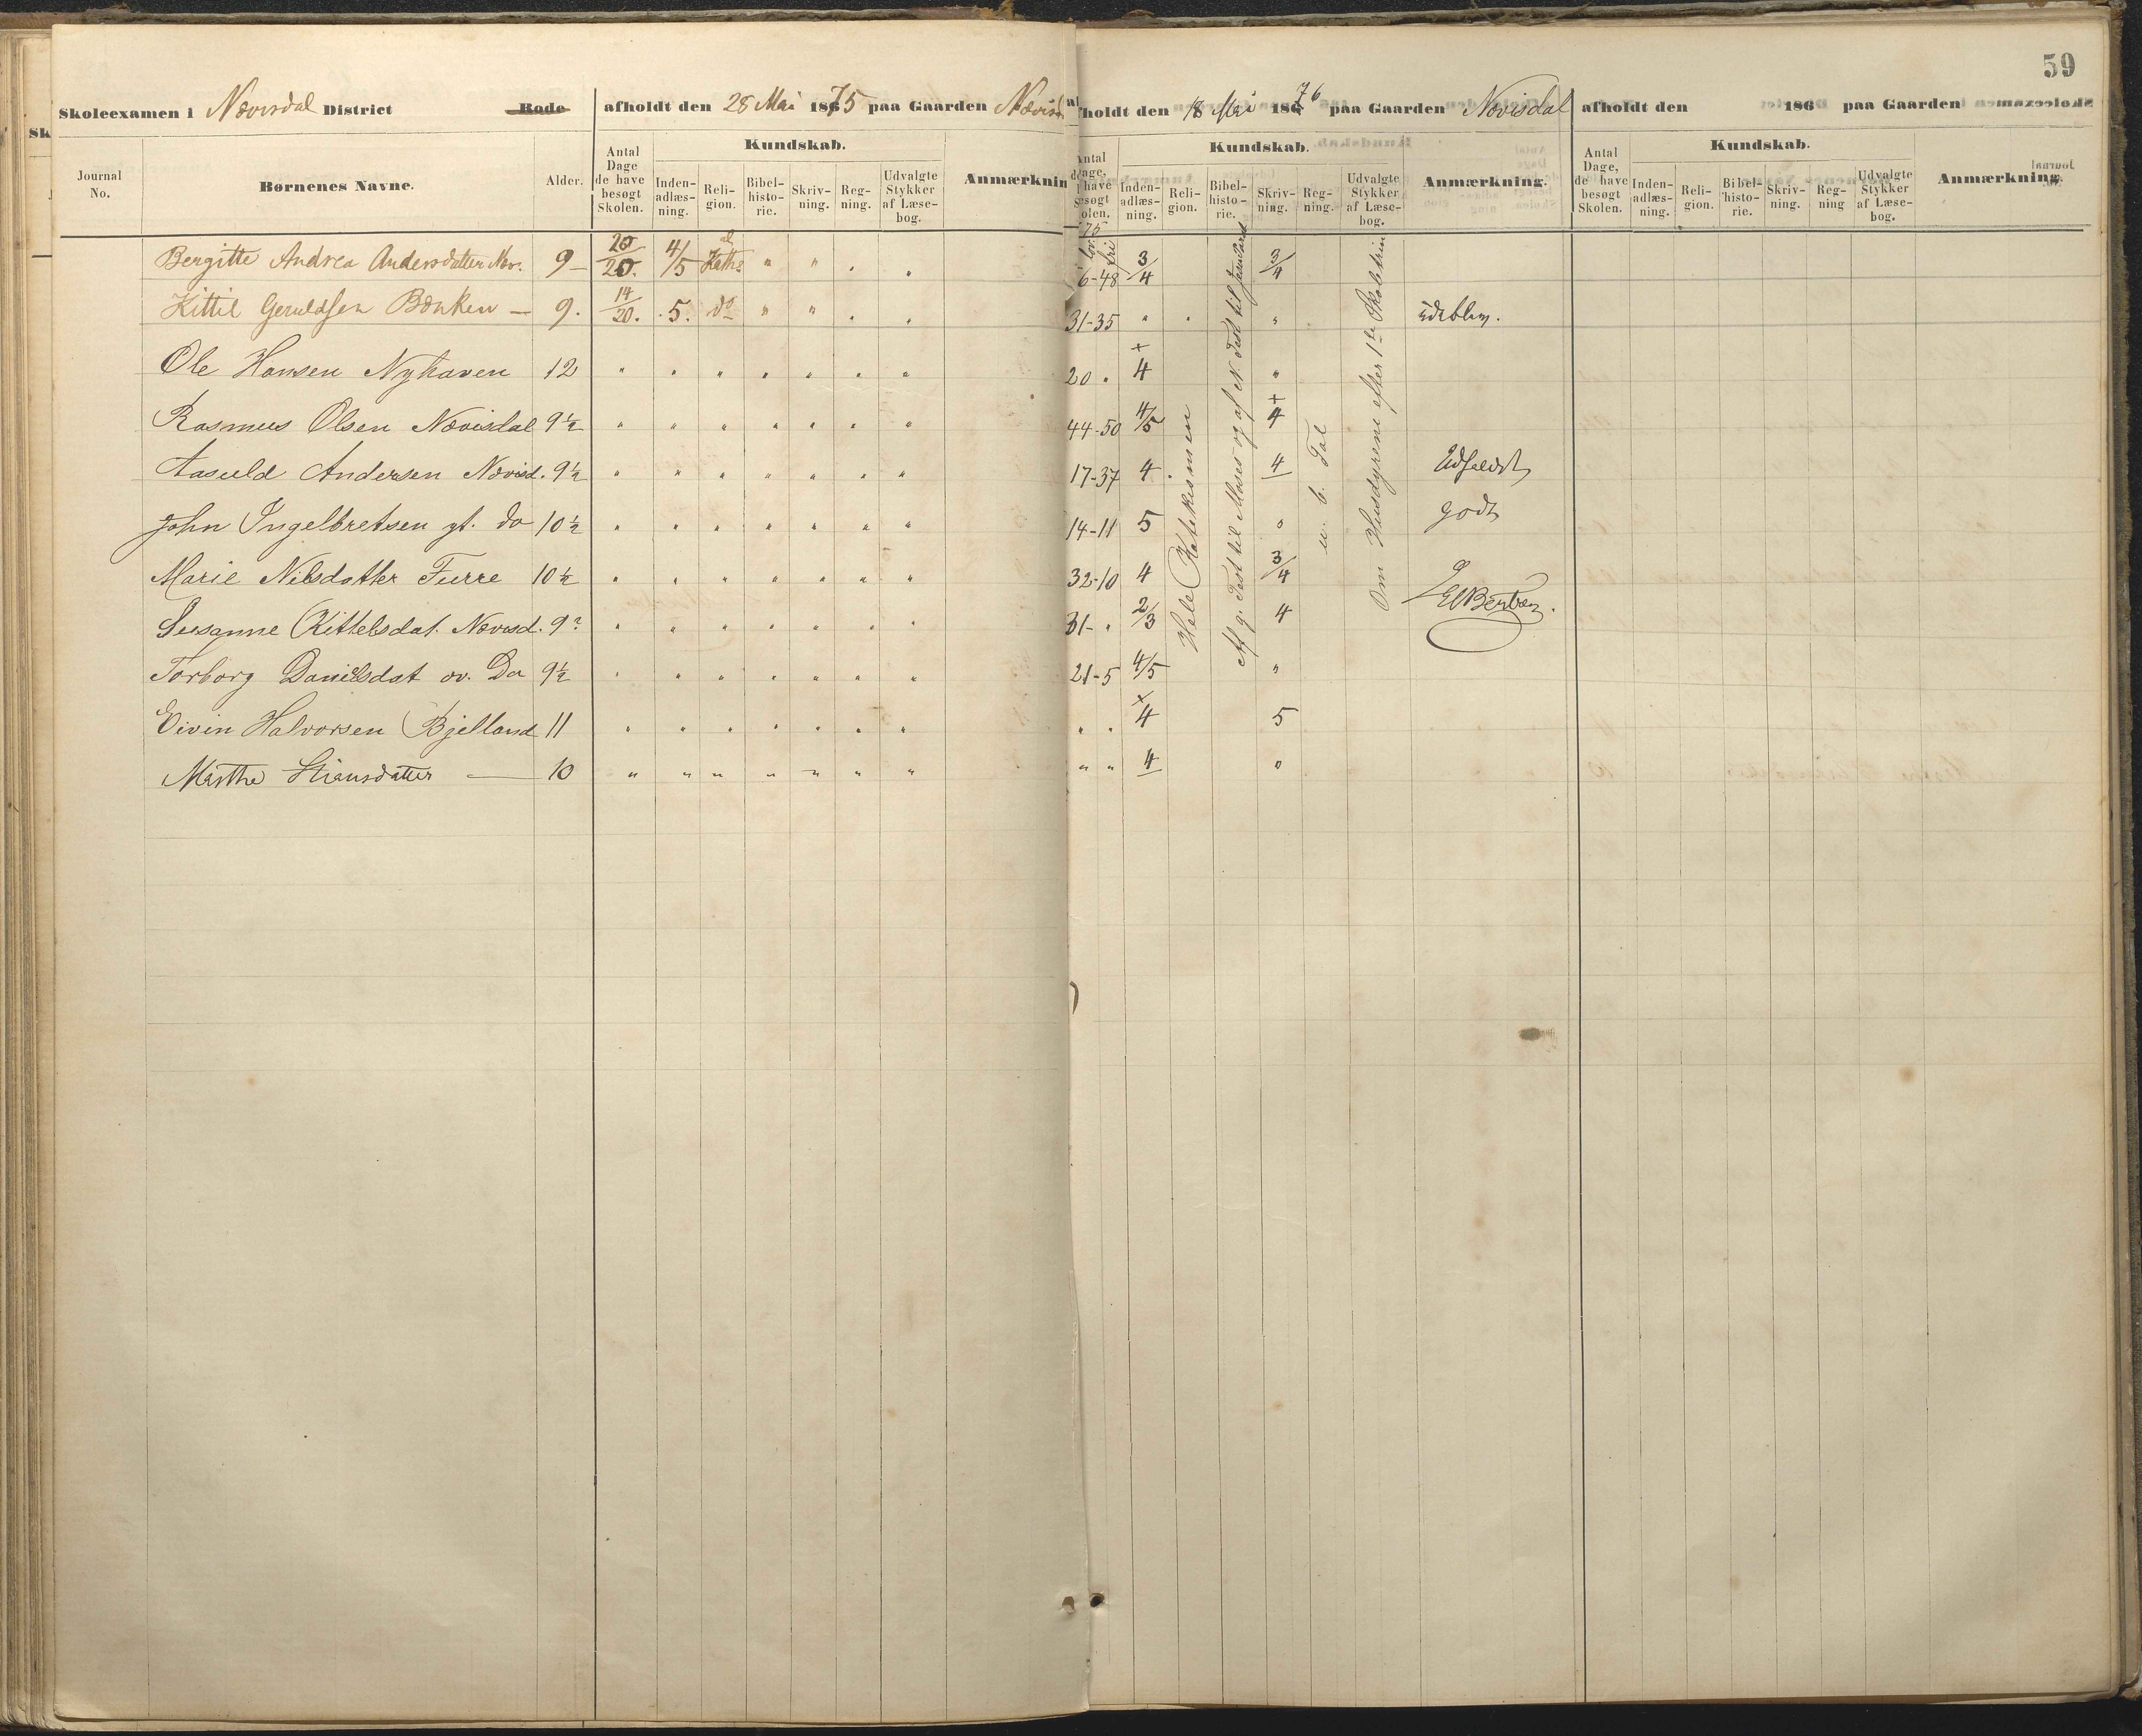 59
Skoleexamen i Nævisdal District Rode afholdt den 28 Mai 1875 paa Gaarden
afholdt den 18 Mai 1876 paa Gaarden Nævisdal
afholdt den 186 paa Gaarden
Journal No. Børnenes Navne. Alder. Antal Dage de have besøgt Skolen. Kundskab. Inden-adlæs-ning. Reli-gion. Bibel-histo-rie. Skriv-ning. Reg-ning. Udvalgte Stykker af Læse-bog.
Kundskab. Inden-adlæs-ning. Reli-gion. Bibel-histo-rie. Skriv-ning. Reg-ning. Udvalgte Stykker af Læse-bog. Anmærkning.
Antal Dage, de have besøgt Skolen. Kundskab. Inden-adlæs-ning. Reli-gion. Bibel-histo-rie. Skriv-ning. Reg-ning Udvalgte Stykker af Læse-bog. Anmærkning.
Bergitte Andrea Andersdatter Næv. 9 – 20/20. 4/5 " " . . 6-48 3/4 3/4
Kittil 9. 14/20. 5. do " " . . 31-35 " . "
Ole Hansen Nyhaven 12 " " " " " " " 20 " 4 "
Rasmus Olsen Nævisdal 9½ " " " " " " " 44-50 4/5 4
Aasuld Andersen Nævisd. 9½ " " " " " " " 17-37 4 . 4 Udfaldt
John Ingelbretsen yt. do 10½ " " " " " " " 14-11 5 " godt
Marie Nilsdatter Furre 10½ " " " " " " " 32-10 4 3/4
Susanne Kittelsdat. Nævisd. 9? " " " " " " " 31- " 2/3 4
Torborg Danielsdat ov. Do 9½ " " " " " " " 21-5 4/5 "
Eivin Halvorsen Bjelland 11 " " " " " " " " " 4 5
Marthe Stiansdatter — 10 " " " " " " " " " 4 "
Hele Katekismen
Af g. Test til Moses og af N. Test til
u. b. Tal
Om Husdyrene efter 1te Skoletrin